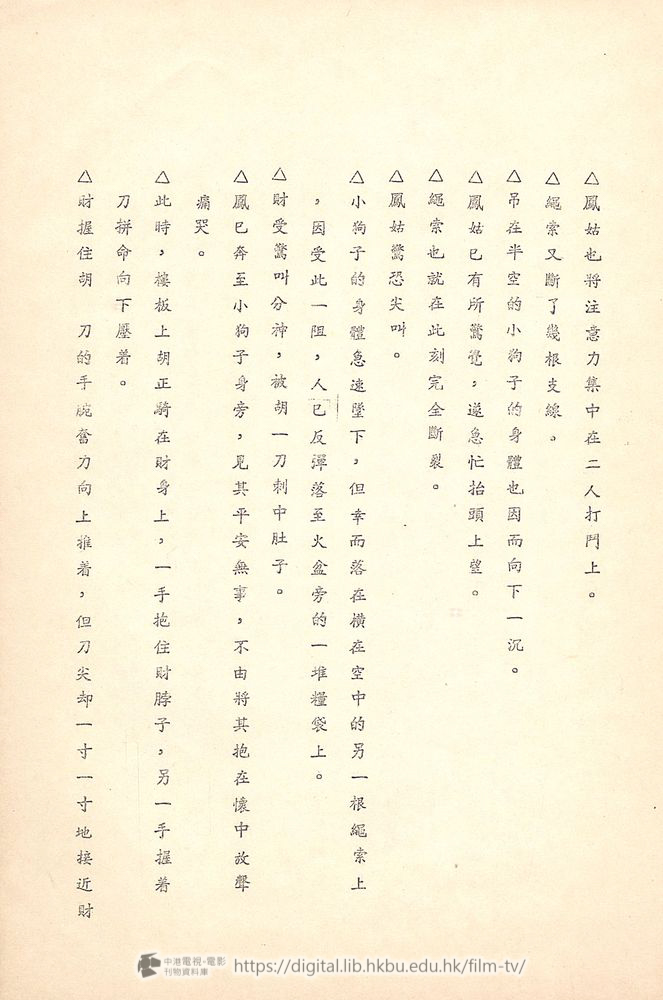 △鳳姑也將注意力集中在二人打鬥上。
△繩索又斷了幾根支線。
△吊在半空的小狗子的身體也因而向下一沉。
△鳳姑已有所驚覺，遂急忙抬頭上望。
△繩索也就在此刻完全斷裂。
△鳳姑驚恐尖叫。
△小狗子的身體急速墜下，但幸而落在橫在空中的另一根繩索上
，因受此一阻，人已反彈落至火盆旁的一堆糧袋上。
△財受驚叫分神，被胡一刀刺中肚子。
△鳳已奔至小狗子身旁，見其平安無事，不由將其抱在懷中放聲
痛哭。
△此時，樓板上胡正騎在財身上，一手抱住財脖子，另一手握着
刀拼命向下壓着。
△財握住胡　刀的手腕奮力向上推着，但刀尖却一寸一寸地接近財
中港電視·電影
刊物資料庫
https://digital.lib.hkbu.edu.hk/film-tv/